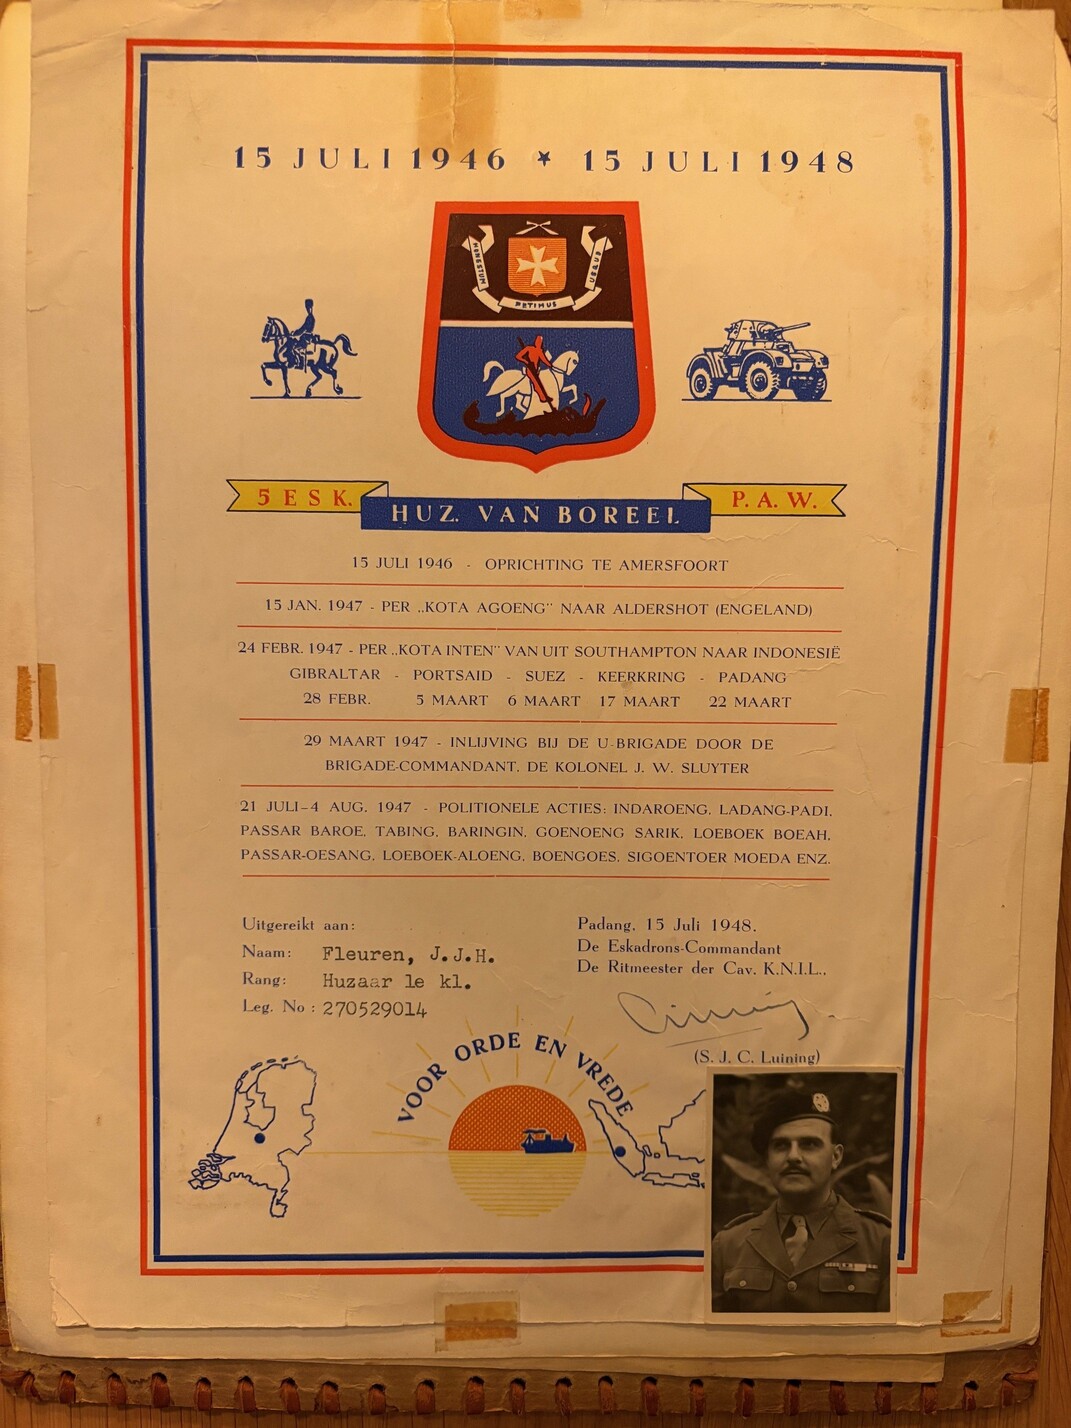 15 JULI 1946 ★ 15 JULI 1948
HONESTUM PETIMUS USQUE
5 ESK. HUZ. VAN BOREEL P. A. W.
15 JULI 1946 - OPRICHTING TE AMERSFOORT
15 JAN. 1947 - PER „KOTA AGOENG" NAAR ALDERSHOT (ENGELAND)
24 FEBR. 1947 - PER „KOTA INTEN" VAN UIT SOUTHAMPTON NAAR INDONESIË
GIBRALTAR - PORTSAID - SUEZ - KEERKRING - PADANG
28 FEBR. 5 MAART 6 MAART 17 MAART 22 MAART
29 MAART 1947 - INLIJVING BIJ DE U-BRIGADE DOOR DE
BRIGADE-COMMANDANT, DE KOLONEL J. W. SLUYTER
21 JULI-4 AUG. 1947 - POLITIONELE ACTIES: INDAROENG, LADANG-PADI,
PASSAR BAROE, TABING, BARINGIN, GOENOENG SARIK, LOEBOEK BOEAH,
PASSAR-OESANG, LOEBOEK-ALOENG, BOENGOES, SIGOENTOER MOEDA ENZ.
Uitgereikt aan:
Naam: Fleuren, J.J.H.
Rang: Huzaar 1e kl.
Leg. No : 270529014
Padang, 15 Juli 1948.
De Eskadrons-Commandant
De Ritmeester der Cav. K.N.I.L.,
Luining
(S. J. C. Luining)
VOOR ORDE EN VREDE